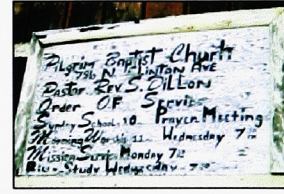 Pilgrim Baptist Church
796 N Clinton Ave
Pastor Rev. S. Dillon
Order OF Service
Sunday School 10 Prayer Meeting
Morning Worship 11 Wednesday 7
Mission Monday 7
Study Wednesday